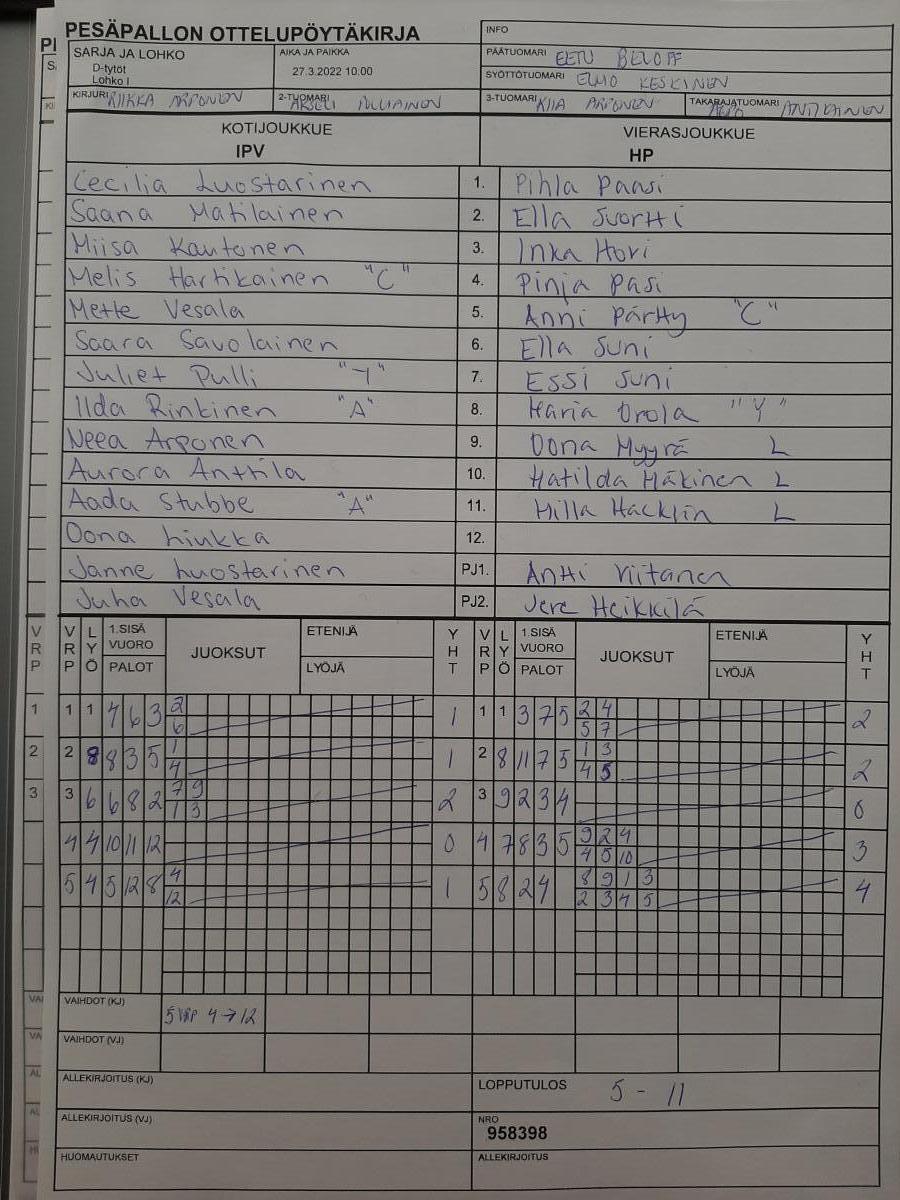 PESÄPALLON OTTELUPÖYTÄKIRJA
INFO
SARJA JA LOHKO
D-tytöt
Lohko I
AIKA JA PAIKKA
27.3.2022 10:00
PÄÄTUOMARI EETU
SYÖTTÖTUOMARI ELMO KESKINEN
KIRJURI RIIKKA ARPONEN
2-TUOMARI
3-TUOMARI KIIA ARPONEN
TAKARAJATUOMARI ANTIKAINEN
KOTIJOUKKUE
IPV
VIERASJOUKKUE
HP
Cecilia Luostarinen 1. Pihla Paasi
Saana Matilainen 2. Ella Suortti
Miisa Kautonen 3. Inka Hovi
Melis Hartikainen "C" 4. Pinja Pasi
Mette Vesala 5. Anni Pärtty "C"
Saara Savolainen 6. Ella Suni
Juliet Pulli 7. Essi Suni
Ilda Rinkinen "A" 8. Maria Orola "Y"
Neea Arponen 9. Oona Myyrä L
Aurora Anttila 10. Matilda Mäkinen L
Aada Stubbe "A" 11. Milla Häcklin L
Oona Liukka 12.
Janne Luostarinen PJ1. Antti Viitanen
Juha Vesala PJ2. Jere Heikkilä
VRP VRP LYÖ 1.SISÄ VUORO PALOT JUOKSUT ETENIJÄ LYÖJÄ YHT VRP LYÖ 1.SISÄ VUORO PALOT JUOKSUT ETENIJÄ LYÖJÄ YHT
1 1 1 4 6 3 2 6 1 1 1 3 7 5 2 4 5 7 2
2 2 8 8 3 5 1 4 1 2 8 11 7 5 1 3 4 5 2
3 3 6 6 8 2 7 9 1 3 2 3 9 2 3 4 0
4 4 10 11 12 0 4 7 8 3 5 9 2 4 4 5 10 3
5 4 5 12 8 4 12 1 5 8 2 4 8 9 1 3 2 3 4 5 4
VAIHDOT (KJ) 5 VRP 4→12
VAIHDOT (VJ)
ALLEKIRJOITUS (KJ)
LOPPUTULOS 5 - 11
ALLEKIRJOITUS (VJ)
NRO
958398
HUOMAUTUKSET
ALLEKIRJOITUS